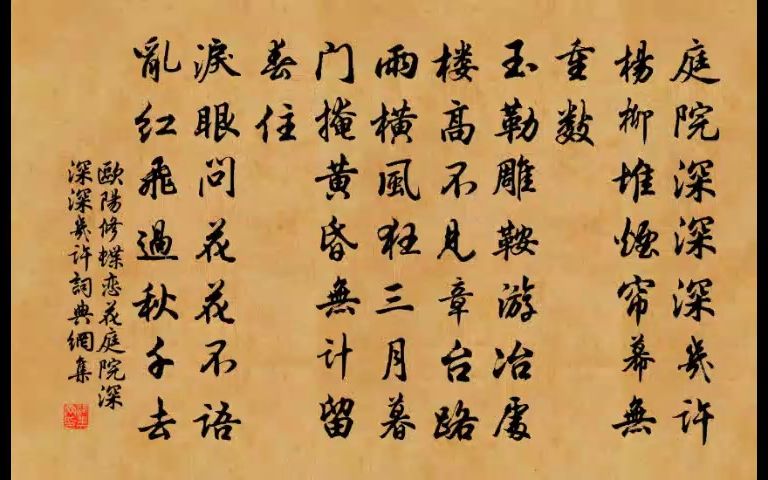 庭院深深深幾許
楊柳堆煙帘幕無
重數
玉勒雕鞍游冶處
楼高不見章台路
雨橫風狂三月暮
门掩黄昏無计留
春住
淚眼问花花不語
亂红飛過秋千去
歐陽修蝶恋花庭院深
深深幾許詞典網集